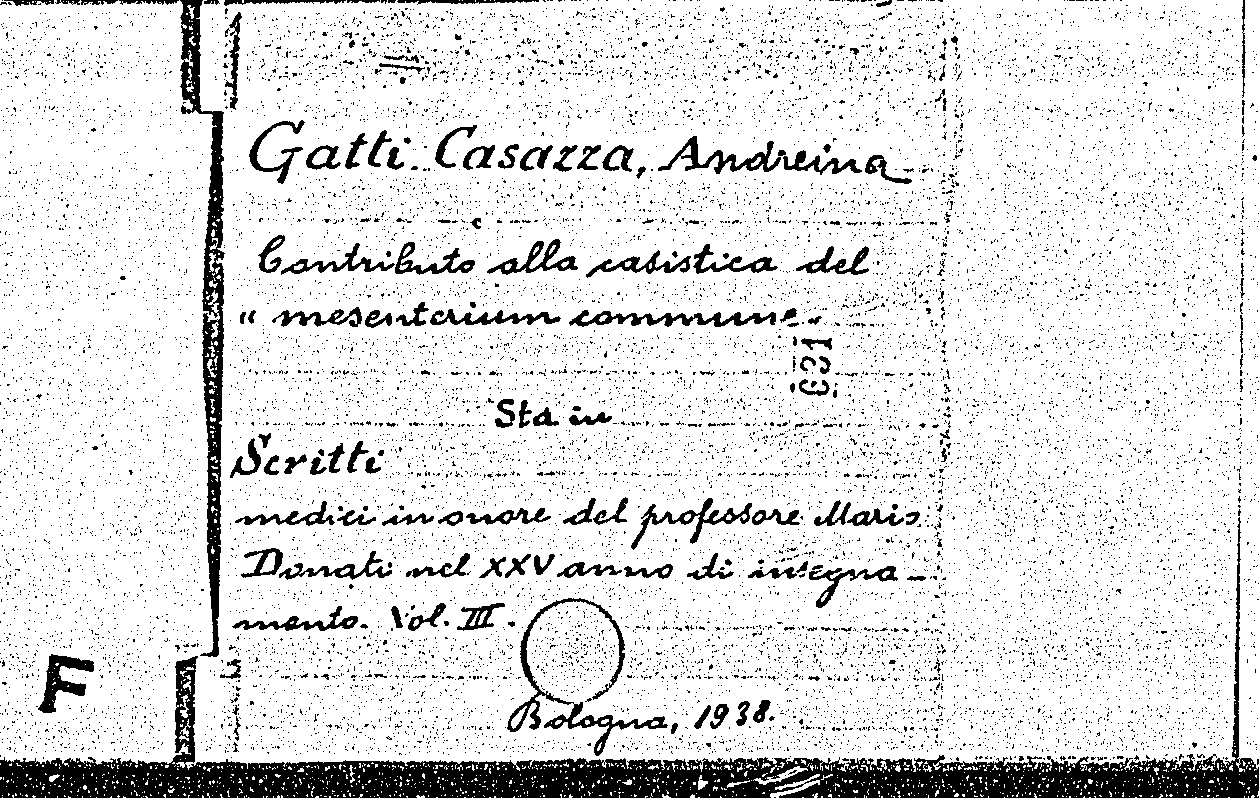 Gatti. Casazza, Andreina
Contributo alla casistica del
" mesenterium commune.
631
Sta in
Scritti
medici in onore del professore Mario
Donati nel XXV anno di insegna-
mento. Vol. III.
F
Bologna, 1938.